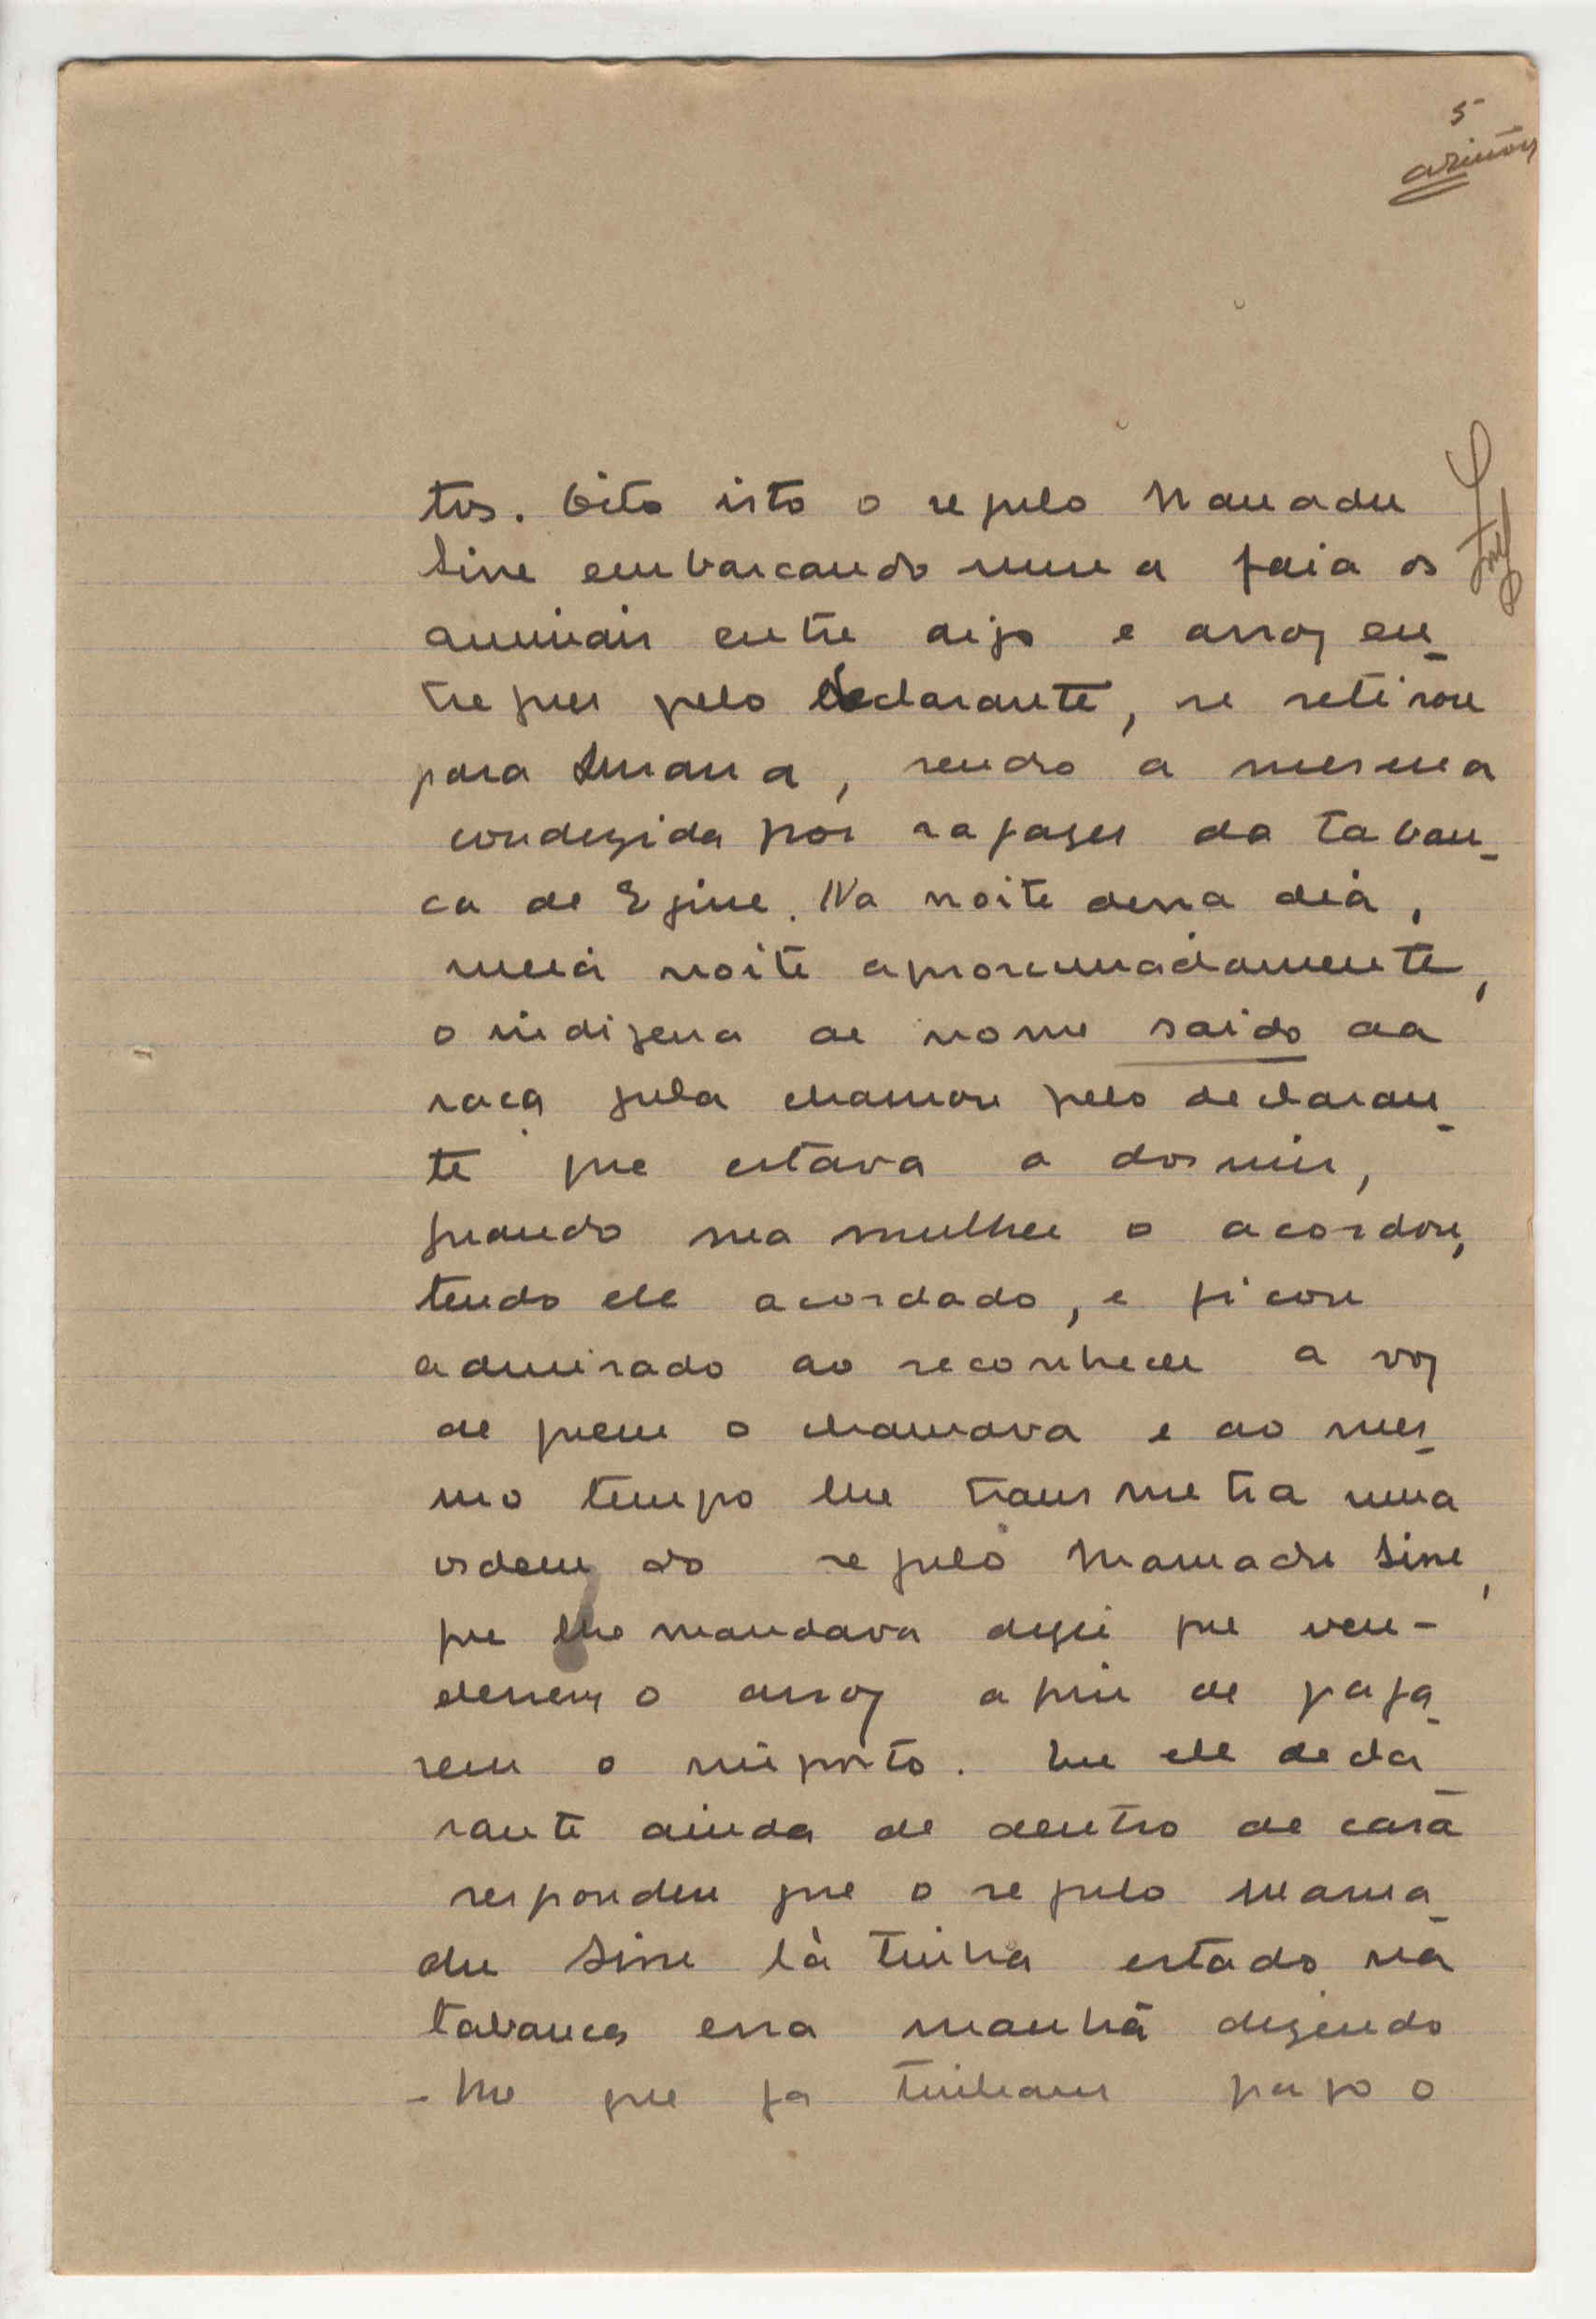 5
tos. Dito isto o regulo Mamadu
Sine embarcando numa
animais entre e arroz en_
tregues pelo declarante, se retirou
para Susana, sendo a mesma
conduzida por rapazes da taban_
ca de Egine. Na noite dessa dia,
meia noite aproximadamente,
o indigena de nome saido da
raça fula chamou pelo declaran_
te que estava a dormir,
quando sua mulher o acordou,
tendo ele acordado, e ficou
admirado ao reconhecer a voz
de quem o chamava e ao mes_
mo tempo lhe transmetia uma
ordem do regulo Mamadu Sine,
que lhe mandava dizer que ven-
dessem o arroz a fim de paga_
rem o imposto. Que ele decla_
rante ainda de dentro de casa
respondeu que o regulo Mama_
du Sine là tinha estado na
tabanca essa manhã dizendo
-lhe que ja tinham pago o